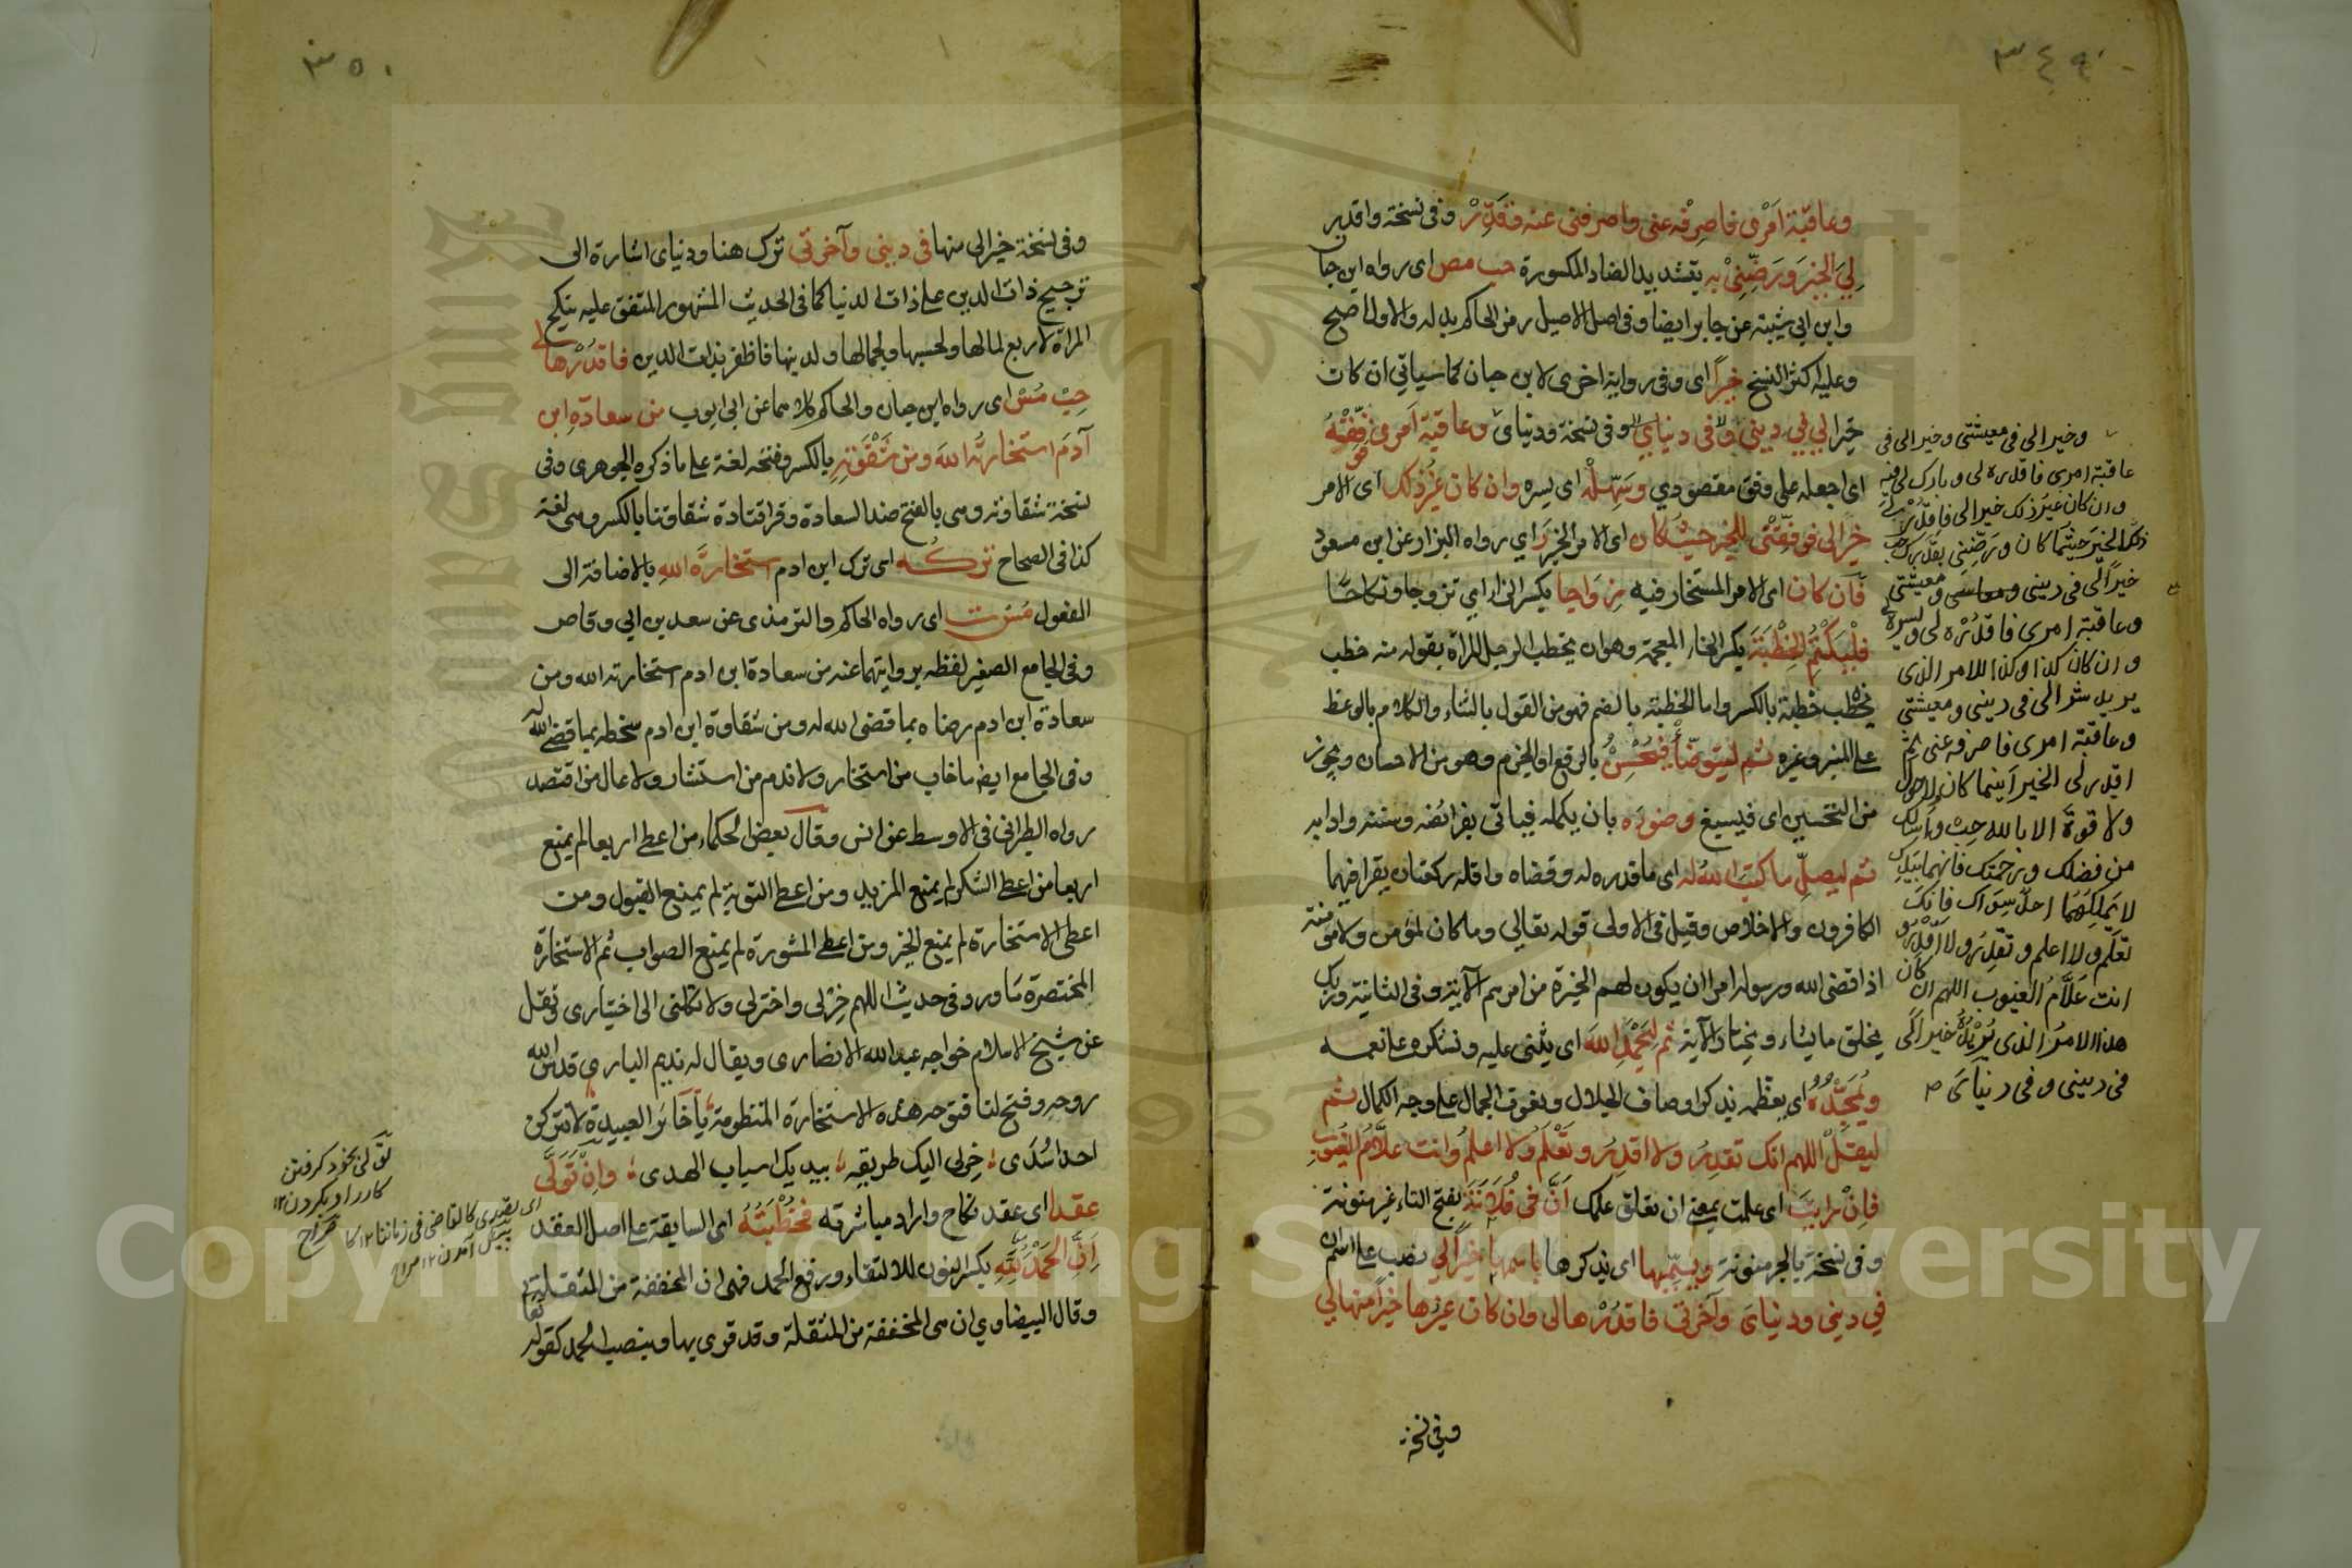 ٣٤٩
وعاقبة امري فاصرفه عني واصرفني عنه فقدر وفى نسخة واقدر
لي الخير ورضني به بتشديد الضاد المكسورة حب مص اى رواه ابن حبا
وابن ابي شيبة عن جابر ايضا وفى اصل الاصيل رمز الحاكم بدله والاول اصح
وعليه اكثر النسخ خيرا اى وفى رواية اخرى لابن حبان كما سياتي ان كان
خيرا لي في ديني وفى دنياي وفى نسخة ودنياى وعاقبة امري فوفقه
اى اجعله على وفق مقصودي وسهله اى يسره وان كان غير ذلك اى الامر
خيرا لى فوفقني للخير حيث كان اى الامر الخير ر اي رواه البزار عن ابن مسعود
فان كان اى الامر المستخار فيه زواجا بكسر الزاء اي تزوجا ونكاحا
فليكتم الخطبة بكسر الخاء المعجمة وهو ان يخطب الرجل المراة يقول منه خطب
يخطب خطبة بالكسر واما الخطبة بالضم فهو من القول بالثناء والكلام بالوعظ
على المنبر وغيره ثم ليتوضأ فيحسن بالرفع او الجزم وهو من الاحسان ويجوز
من التحسين اى فيسبغ وضوءه بان يكمله فياتي بفرائضه وسننه وادابه
ثم ليصل ما كتب الله له اى ما قدره له وقضاه واقله ركعتان يقرا فيهما
الكافرون والاخلاص وقيل فى الاولى قوله تعالى وما كان لمؤمن ولا مؤمنة
اذا قضى الله ورسوله امرا ان يكون لهم الخيرة من امرهم الآية وفى الثانية وربك
يخلق ما يشاء ويختار الآية ثم ليحمد الله اى يثنى عليه ونشكره على نعمه
ويمجده اى يعظمه بذكر اوصاف الجلال ونعوت الجمال على وجه الكمال ثم
ليقل اللهم انك تقدر ولا اقدر وتعلم ولا اعلم وانت علام الغيوب
فان رايت اى علمت بمعنى ان تعلق علمك ان في فلانة بفتح التاء غير منونة
وفى نسخة بالجر منونة ويسميها اى يذكرها باسمها خيرا لي نصب على اسم ان
في ديني ودنياى وآخرتي فاقدرها لى وان كان غيرها خيرا منها لي
وفي نسخة
وخيرا لى فى معيشتى وخيرا لى فى
عاقبة امرى فاقدره لى وبارك لى فيه
وان كان غير ذلك خيرا لى فاقدر لى
ذلك الخير حيثما كان ورضني بقدرك حب
خيرا لى فى دينى ومعاشى ومعيشتى
وعاقبة امرى فاقدره لى ويسره لى
وان كان كذا وكذا للامر الذى
يريد شرا لى فى دينى ومعيشتى
وعاقبة امرى فاصرفه عنى ثم
اقدر لى الخير اينما كان ولا حول
ولا قوة الا بالله حب واسالك
من فضلك ورحمتك فانهما بيدك
لا يملكهما احد سواك فانك
تعلم ولا اعلم وتقدر ولا اقدر و
انت علام الغيوب اللهم ان كان
هذا الامر الذى يريده خيرا لى
فى دينى وفى دنياى
٣٥٠
وفى نسخة خيرا لى منها فى دينى وآخرتي ترك هنا ودنياى اشارة الى
ترجيح ذات الدين على ذات الدنيا كما فى الحديث المشهور المتفق عليه ينكح
المراة لاربع لمالها ولحسبها ولجمالها ولدينها فاظفر بذات الدين فاقدرها لى
حب مس اى رواه ابن حبان والحاكم كلاهما عن ابى ايوب من سعادة ابن
آدم استخارته الله ومن شقوته بالكسر وفتحه لغة على ما ذكره الجوهرى وفى
نسخة شقاوته وهى بالفتح ضد السعادة وقرا قتادة شقاوتنا بالكسر وهى لغة
كذا فى الصحاح تركه اى ترك ابن ادم استخارة الله بالاضافة الى
المفعول مس ت اى رواه الحاكم والترمذى عن سعد بن ابي وقاص
وفى الجامع الصغير لفظه بروايتهما عنه من سعادة ابن ادم استخارته الله ومن
سعادة ابن ادم رضاه بما قضى الله له ومن شقاوة ابن ادم سخطه بما قضى الله له
وفى الجامع ايضا ما خاب من استخار ولا ندم من استشار ولا عال من اقتصد
رواه الطبرانى فى الاوسط عن انس وقال بعض الحكماء من اعطى اربعا لم يمنع
اربعا من اعطى الشكر لم يمنع المزيد ومن اعطى التوبة لم يمنع القبول ومن
اعطى الاستخارة لم يمنع الخير ومن اعطى المشورة لم يمنع الصواب ثم الاستخارة
المختصرة ما ورد فى حديث اللهم خرلى واخترلى ولا تكلنى الى اختيارى ونقل
عن شيخ الاسلام خواجه عبد الله الانصارى ويقال له نديم البارى قدس الله
روحه وفتح لنا فتوحه هذه الاستخارة المنظومة يا خائر العبيده لا تتركن
احدا سدى خرلى اليك طريقه بيديك اسباب الهدى وان تولى
عقدا اى عقد نكاح واراد مباشرته فخطبته اى السابقة على اصل العقد
ان الحمد لله بكسر النون للالتقاء ورفع الحمد فهى ان المخففة من المثقلة
وقال البيضاوي ان هى المخففة من المثقلة وقد قرى بها وبنصب الحمد كقوله تعا
تولى بخود كرفتن
كار را وبكردن ١٢
صراح
اى بتقدير كالقاضى فى زماننا ١٢